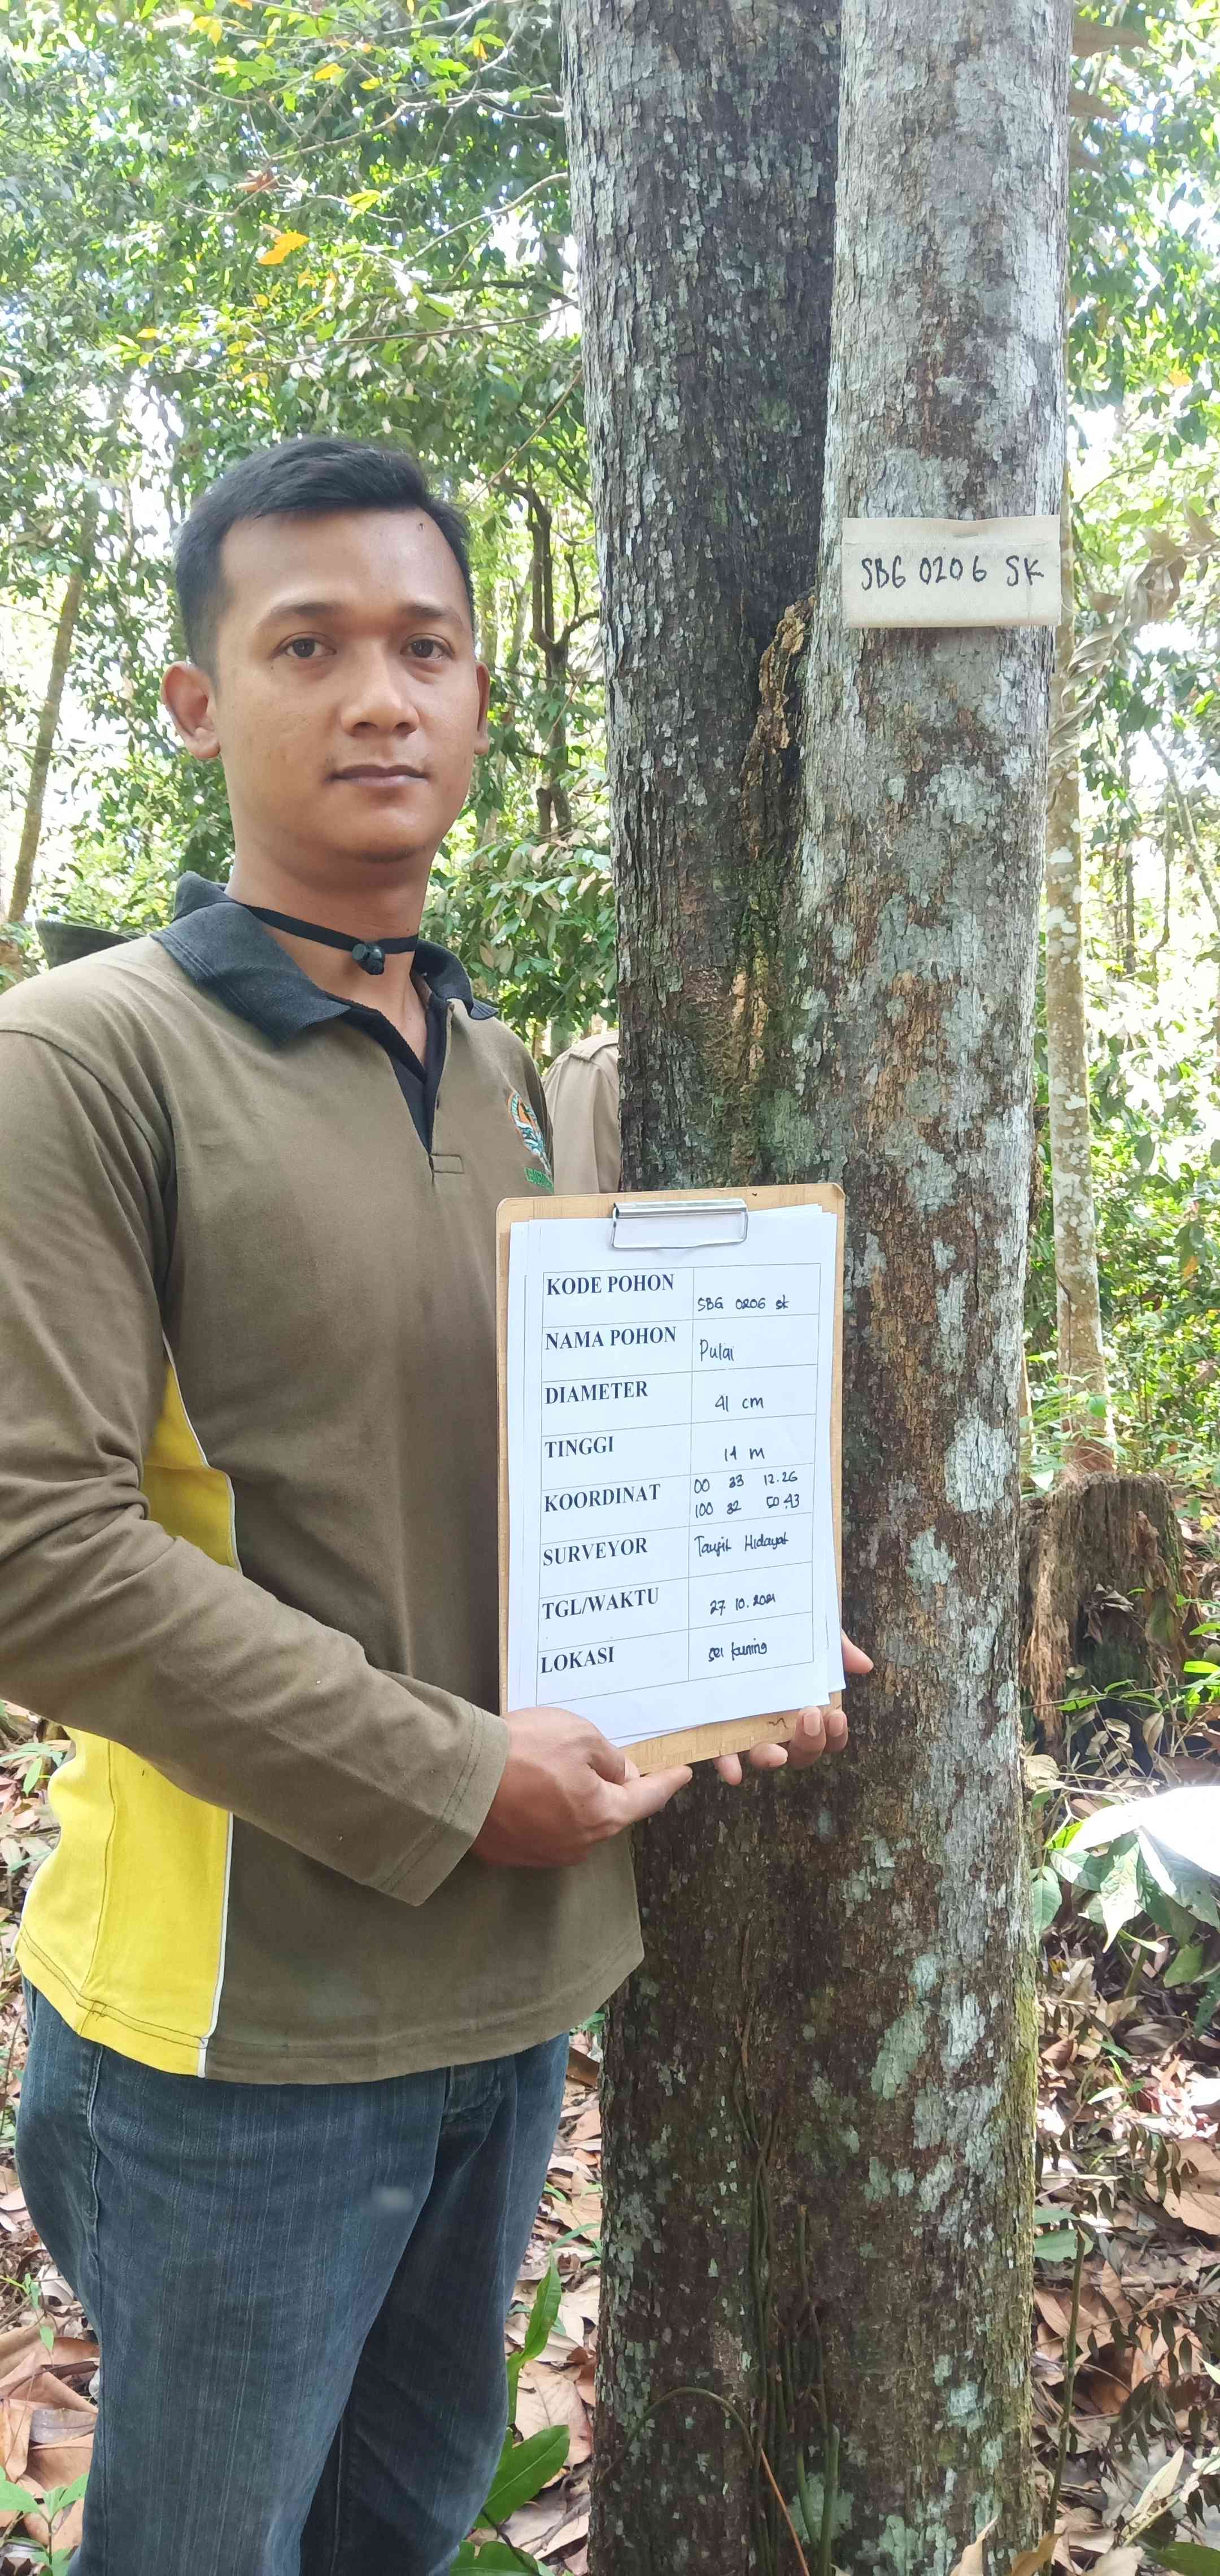 SBG 0206 SK
KODE POHON SBG 0206 sk
NAMA POHON Pulai
DIAMETER 41 cm
TINGGI 14 m
KOORDINAT 00 33 12.26
100 32 50.43
SURVEYOR Taufik Hidayat
TGL/WAKTU 27 10.2021
LOKASI sei kuning